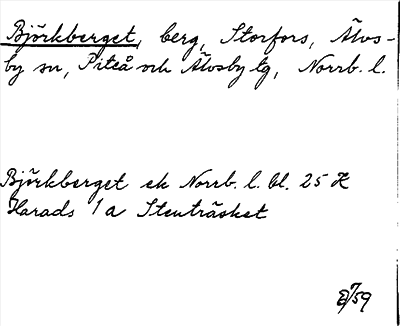 Björkberget, berg, Storfors, Älvs-
by sn, Piteå och Älvsby tg, Norrb. l.
Björkberget ek Norrb. l. bl. 25 H
Harads 1a Stenträsket